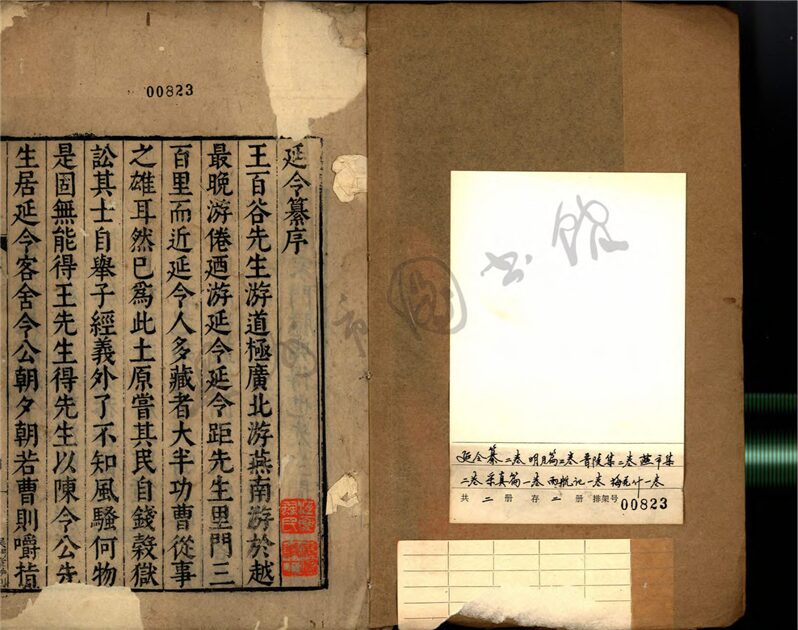 00823
延令纂序
王百谷先生游道極廣北游燕南游於越
最晚游倦迺游延令延令距先生里門三
百里而近延令人多藏者大半功曹從事
之雄耳然已爲此土原嘗其民自錢穀獄
訟其士自舉子經義外了不知風騷何物
是固無能得王先生得先生以陳令公先
生居延令客舍令公朝夕朝若曹則嚼指
延令纂二卷 明月篇二卷 晋陵集二卷 燕市集
二卷 采真篇一卷 雨航记一卷 梅花什一卷
共 二 册 存 二 册 排架号 00823